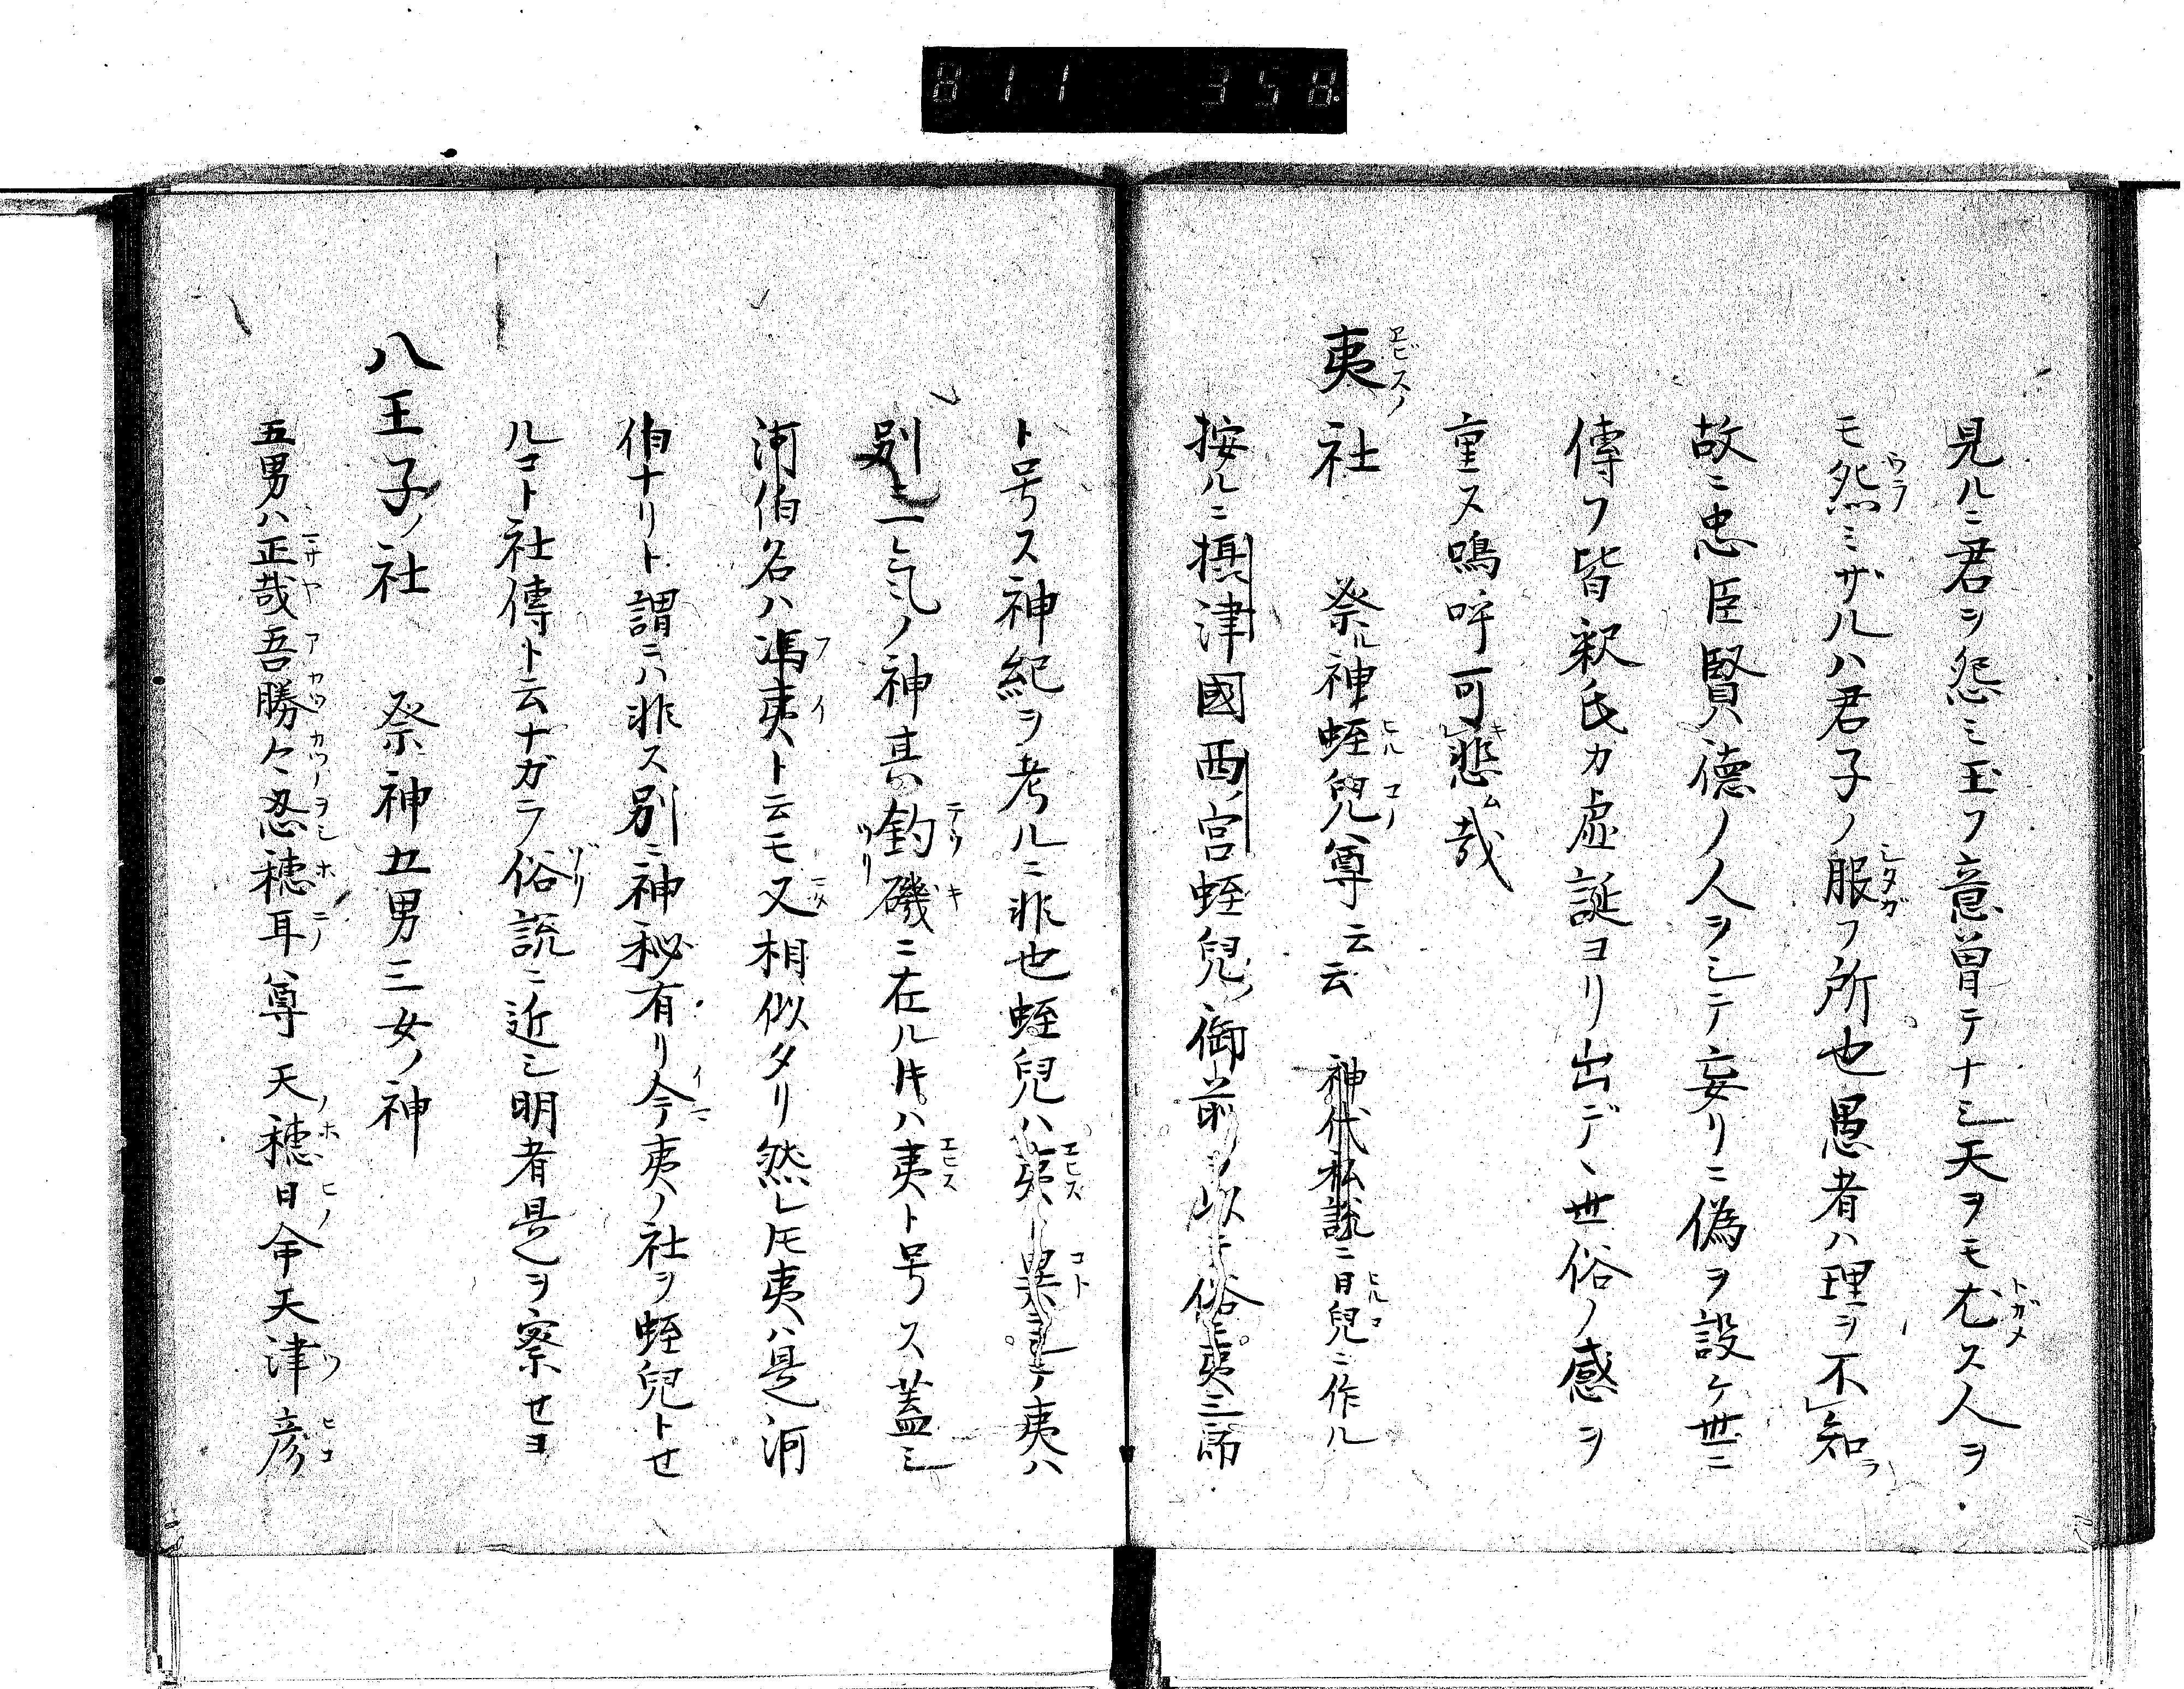 811 358
見ルニ君ヲ怨ミ玉フ意曽テナシ天ヲモ尤ス人ヲ
モ怨ミザルハ君子ノ服フ所也愚者ハ理ヲ不知ラ
故ニ忠臣賢德ノ人ヲシテ妄リニ偽ヲ設ケ世ニ
傳フ皆釈氏カ虚誕ヨリ出デヽ世俗ノ感ヲ
重ス嗚呼可悲ム哉
夷社 祭ル神蛭兒尊云云 神代私説ニ日兒ニ作ル
按ルニ摂津國西ノ宮蛭兒ノ御前ヲ以テ俗ニ夷三郎
ト号ス神紀ヲ考ルニ非也蛭兒ハ夷ト異ニシテ夷ハ
別ニ一氣ノ神其釣磯ニ在ル時ハ夷ト号ス蓋シ
河伯名ハ馮夷ト云モ又相似タリ然レ𪜈夷ハ是河
伯ナリト謂ニハ非ス別ニ神秘有リ今夷ノ社ヲ蛭兒トセ
ルコト社傳ト云ナガラ俗説ニ近シ明者是ヲ察セヨ
八王子ノ社 祭神五男三女ノ神
五男ハ正哉吾勝々忍穂耳尊 天穂日命天津彦